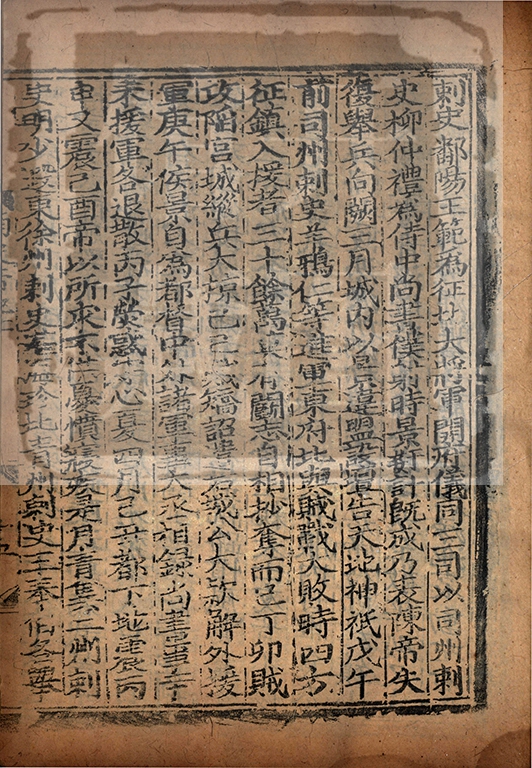 刺史鄱陽王範為征北大將軍開府儀同三司以司州刺
史柳仲禮為侍中尚書僕射時景姦計既成乃表陳帝失
復舉兵向闕三月城內以景違盟設壇告天地神祇戊午
前司州刺史羊鴉仁等進軍東府北與賊戰大敗時四方
征鎮入援者三十餘萬莫有鬭志自相抄奪而已丁卯賊
攻陷宮城縱兵大掠己巳賊矯詔遣石城公大款解外援
軍庚午侯景自為都督中外諸軍事大丞相錄尚書事辛
未援軍各退散丙子熒惑守心夏四月己丑都下地震丙
申又震己酉帝以所求不供憂憤寢疾是月青冀二州刺
史明少遐東徐州刺史湛海珍北青州刺史王奉伯各舉